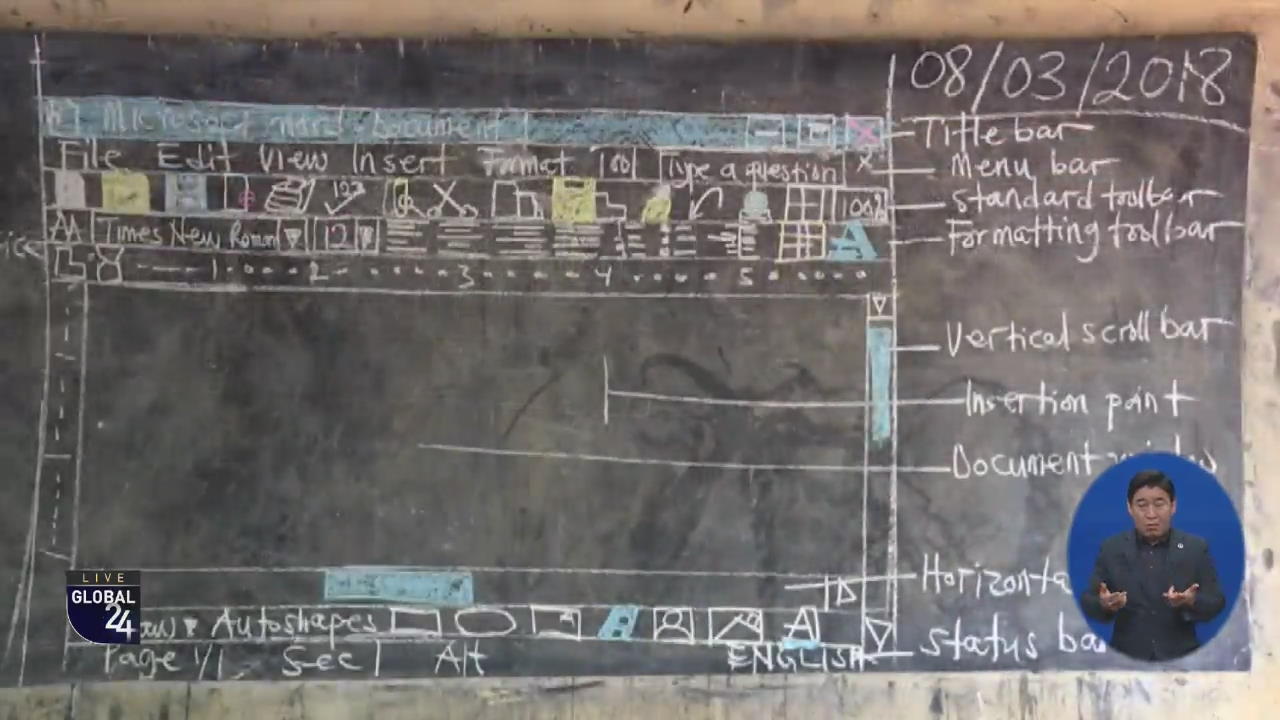 08/03/2018
Microsoft word-Document
Title bar
File Edit View Insert Format Tool Type a question x
Menu bar
123
100%
Standard toolbar
AA Times New Roman 12 A
Formatting toolbar
1 2 3 4 5
Vertical scroll bar
Insertion point
Document
Horizonta
LIVE
GLOBAL
24
Autoshapes A
Status ba
Page 1/1 Sec A/t ENGLISH